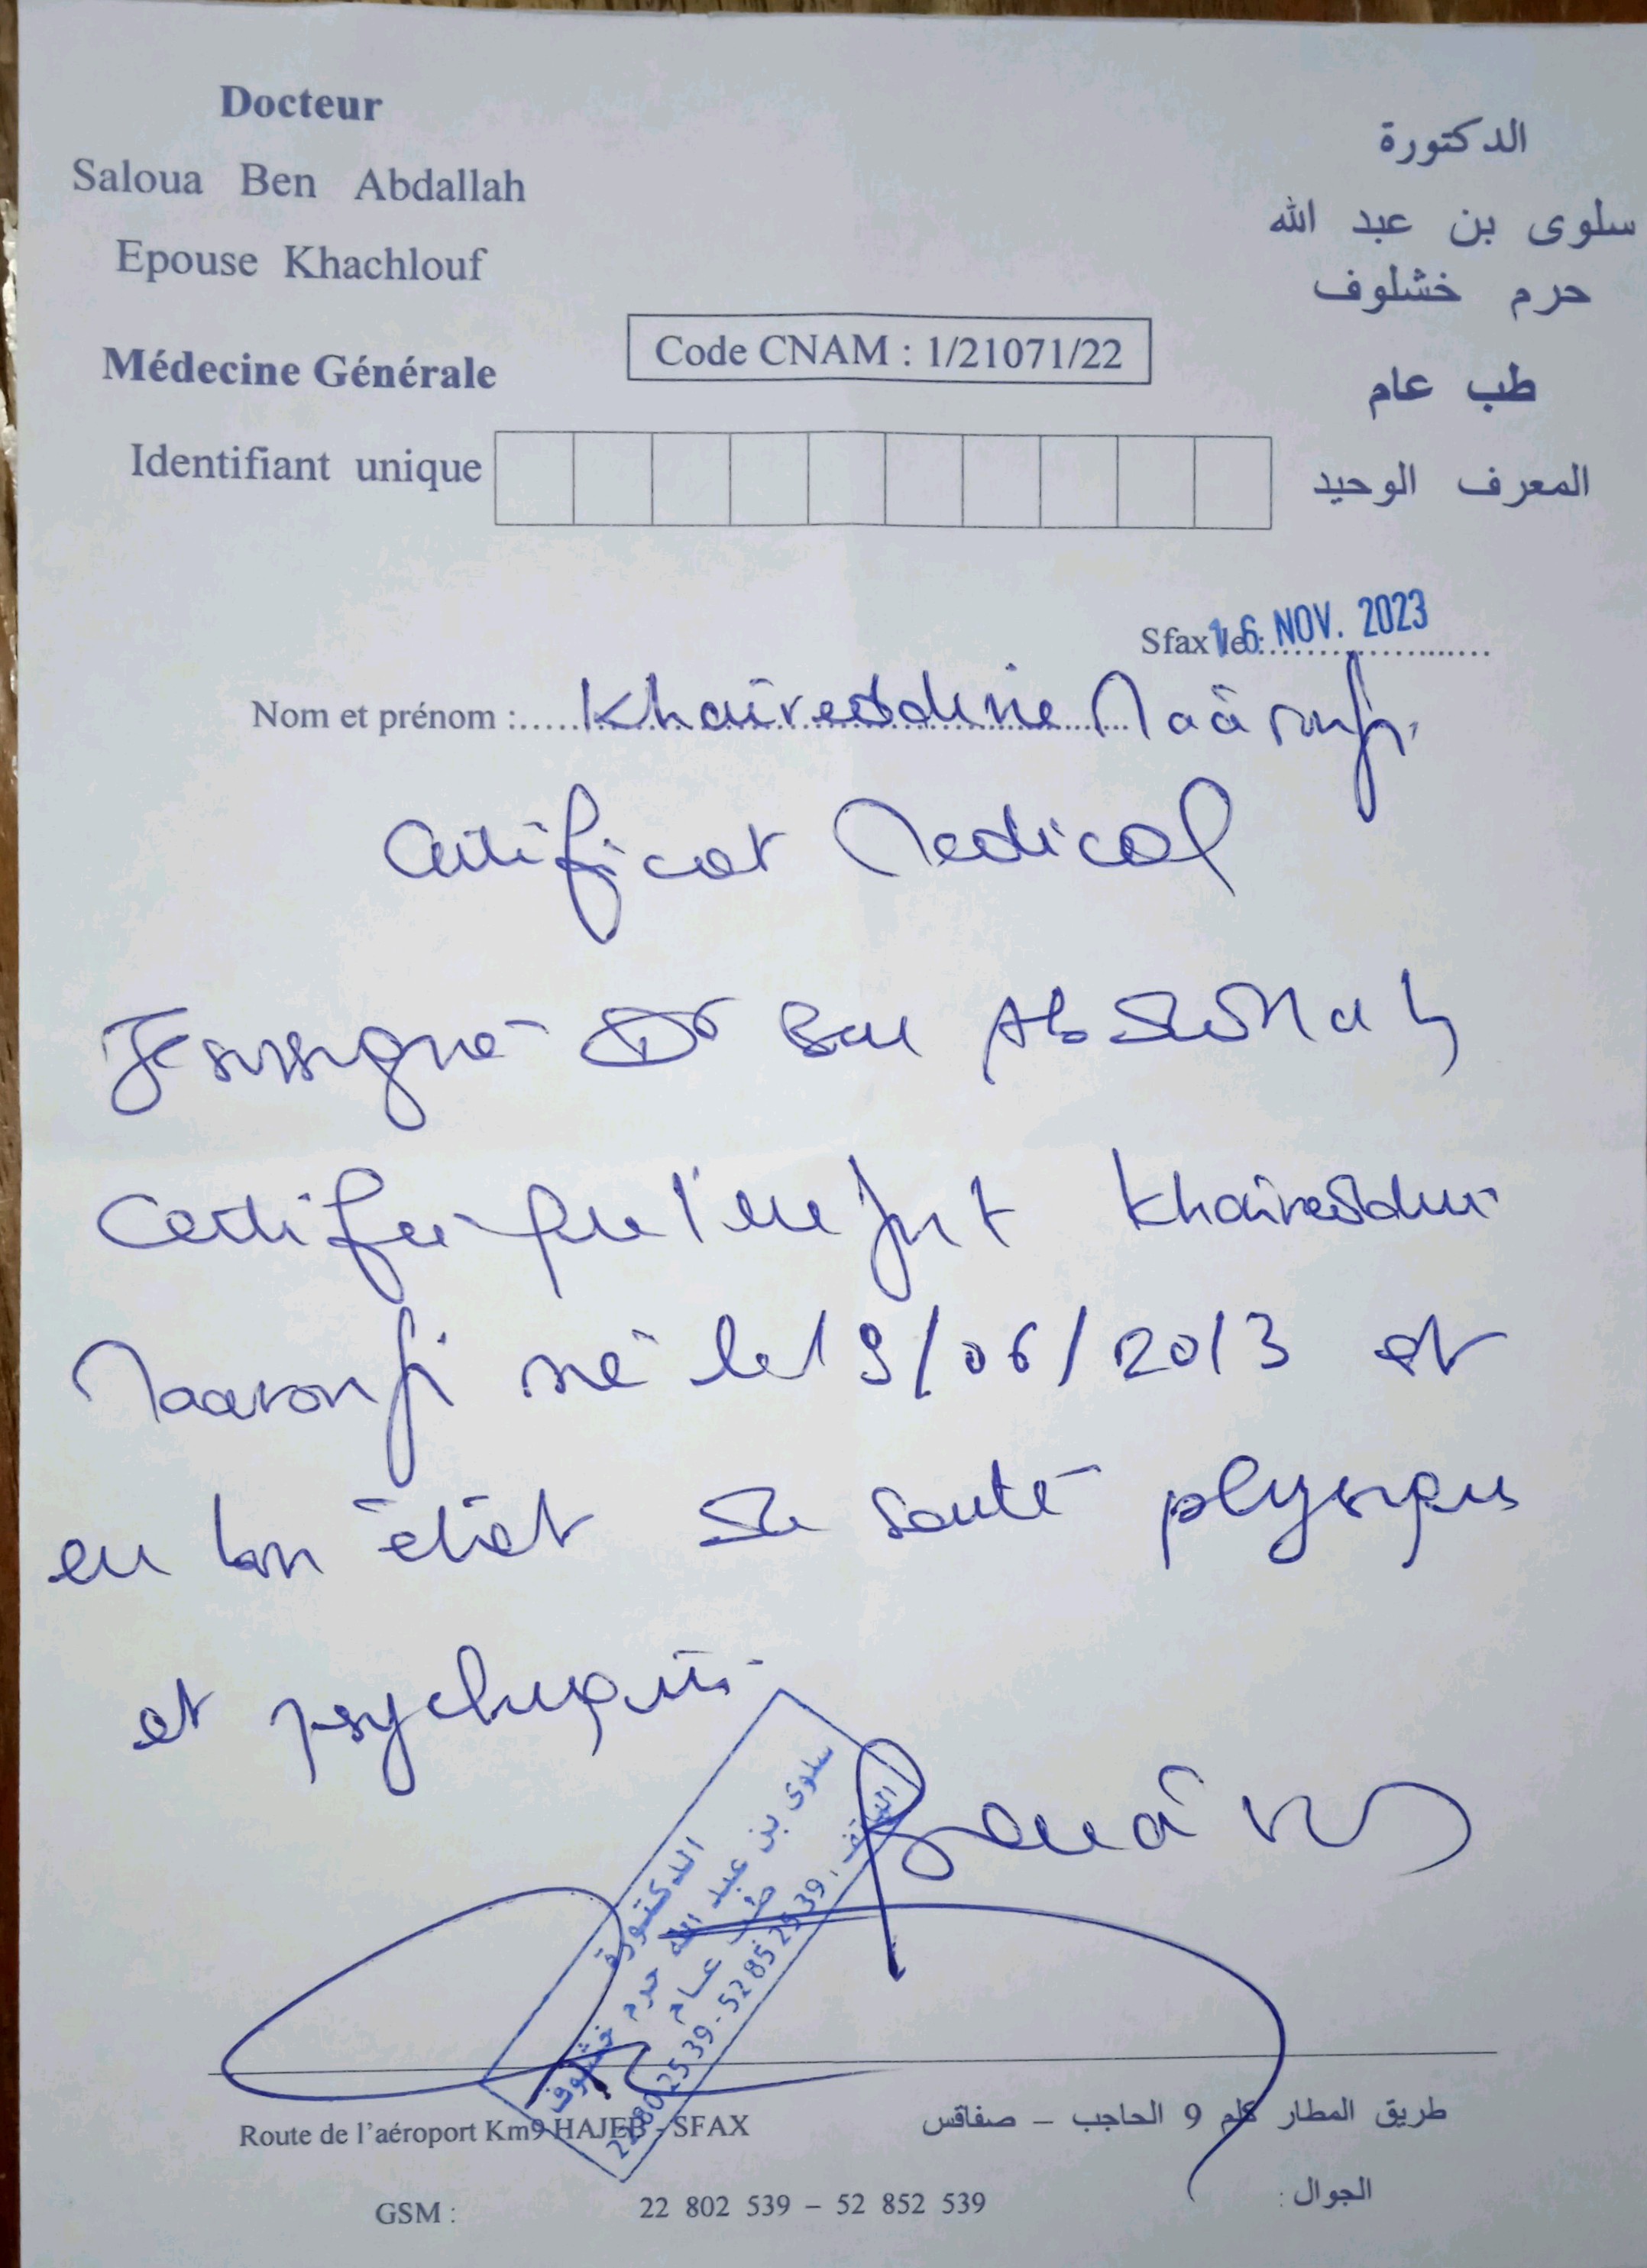 Docteur
Saloua Ben Abdallah
Epouse Khachlouf
Médecine Générale
Identifiant unique
الدكتورة
سلوى بن عبد الله
حرم خشلوف
طب عام
المعرف الوحيد
Code CNAM : 1/21071/22
Sfax le : 16 NOV. 2023
Nom et prénom : Khaireddine Maâroufi
Certificat Medical
Je soussigné Dr Ben Abdallah
Certifie que l'enfant Khaireddine
Maaroufi né le 19/06/2013 et
en bon état de santé physique
et psychique.
الدكتورة
سلوى بن عبد الله حرم خشلوف
طب عام
الهاتف : 22802539 - 52852539
Route de l'aéroport Km9 HAJEB - SFAX
طريق المطار كلم 9 الحاجب – صفاقس
GSM : 22 802 539 – 52 852 539 الجوال :